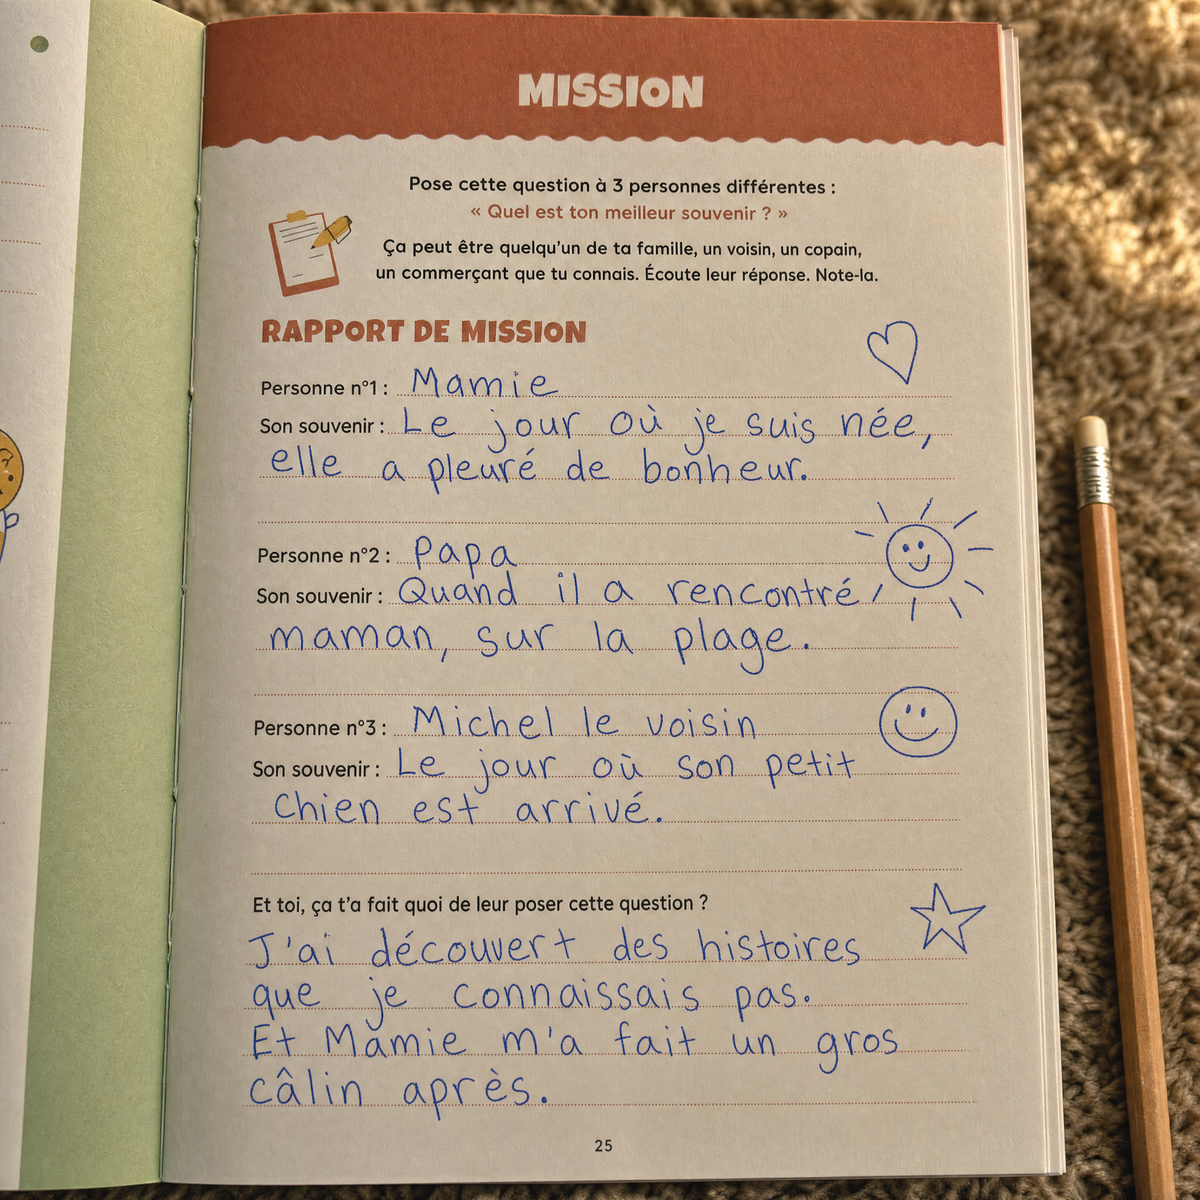 MISSION
Pose cette question à 3 personnes différentes :
« Quel est ton meilleur souvenir ? »
Ça peut être quelqu'un de ta famille, un voisin, un copain,
un commerçant que tu connais. Écoute leur réponse. Note-la.
RAPPORT DE MISSION
Personne n°1 : Mamie
Son souvenir : Le jour où je suis née,
elle a pleuré de bonheur.
Personne n°2 : Papa
Son souvenir : Quand il a rencontré
maman, sur la plage.
Personne n°3 : Michel le voisin
Son souvenir : Le jour où son petit
chien est arrivé.
Et toi, ça t'a fait quoi de leur poser cette question ?
J'ai découvert des histoires
que je connaissais pas.
Et Mamie m'a fait un gros
câlin après.
25